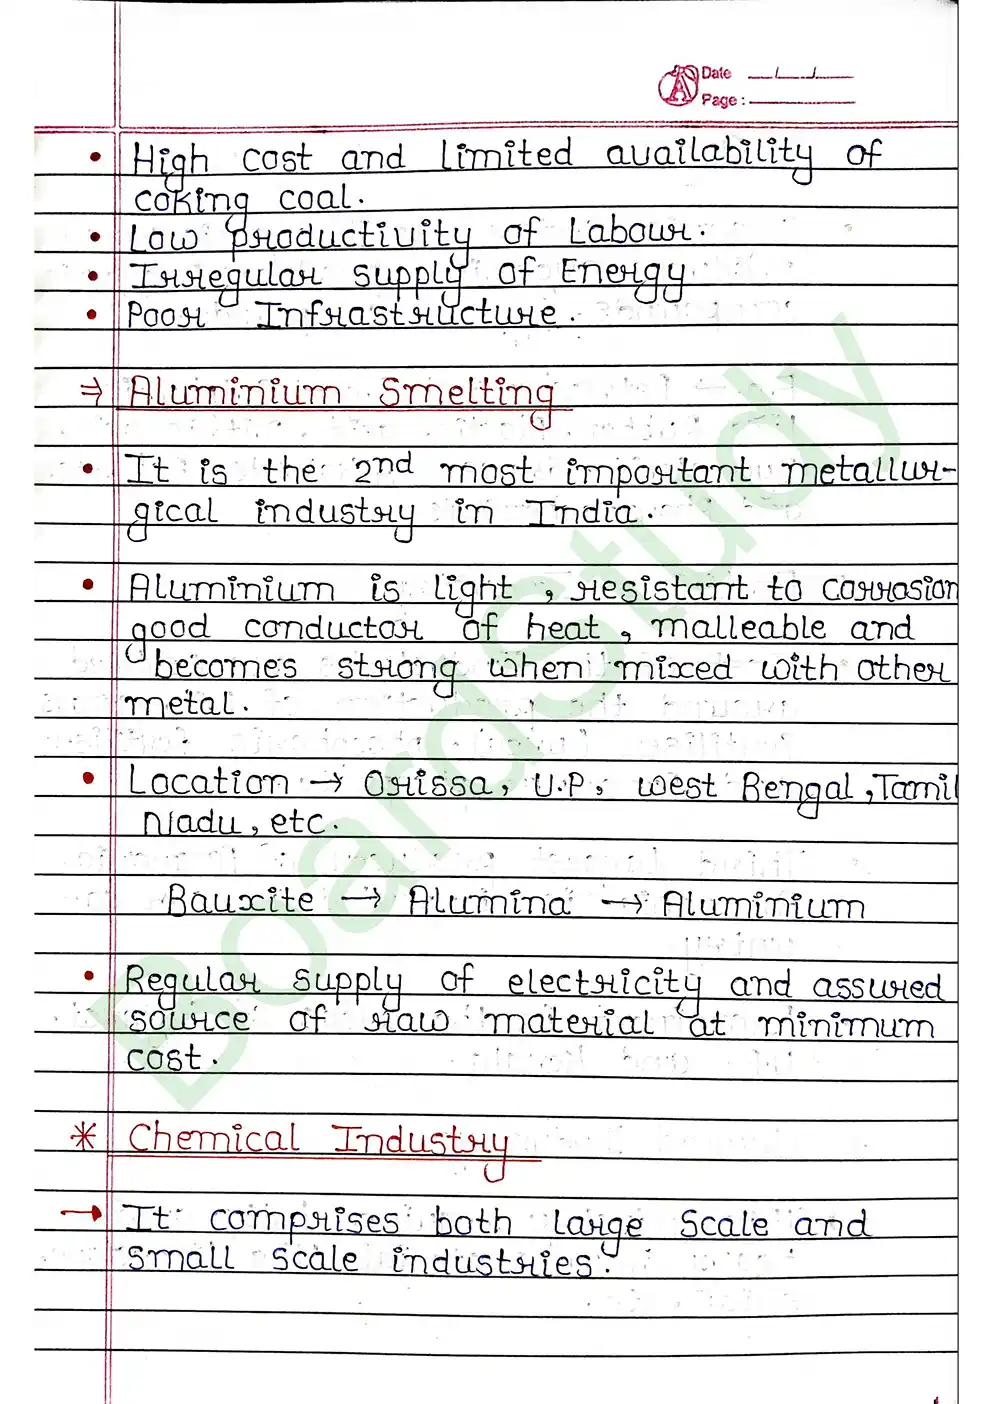 Date
Page :
• High cost and limited availability of
coking coal.
• Low productivity of Labour.
• Irregular supply of Energy
• Poor Infrastructure.
⇒ Aluminium Smelting
• It is the 2nd most important metallur-
gical industry in India.
• Aluminium is light, resistant to corrosion
good conductor of heat, malleable and
becomes strong when mixed with other
metal.
• Location → Orissa, U.P, West Bengal, Tamil
Nadu, etc.
Bauxite → Alumina → Aluminium
• Regular supply of electricity and assured
source of raw material at minimum
cost.
* Chemical Industry
→ It comprises both large scale and
small scale industries.
BoardStudy